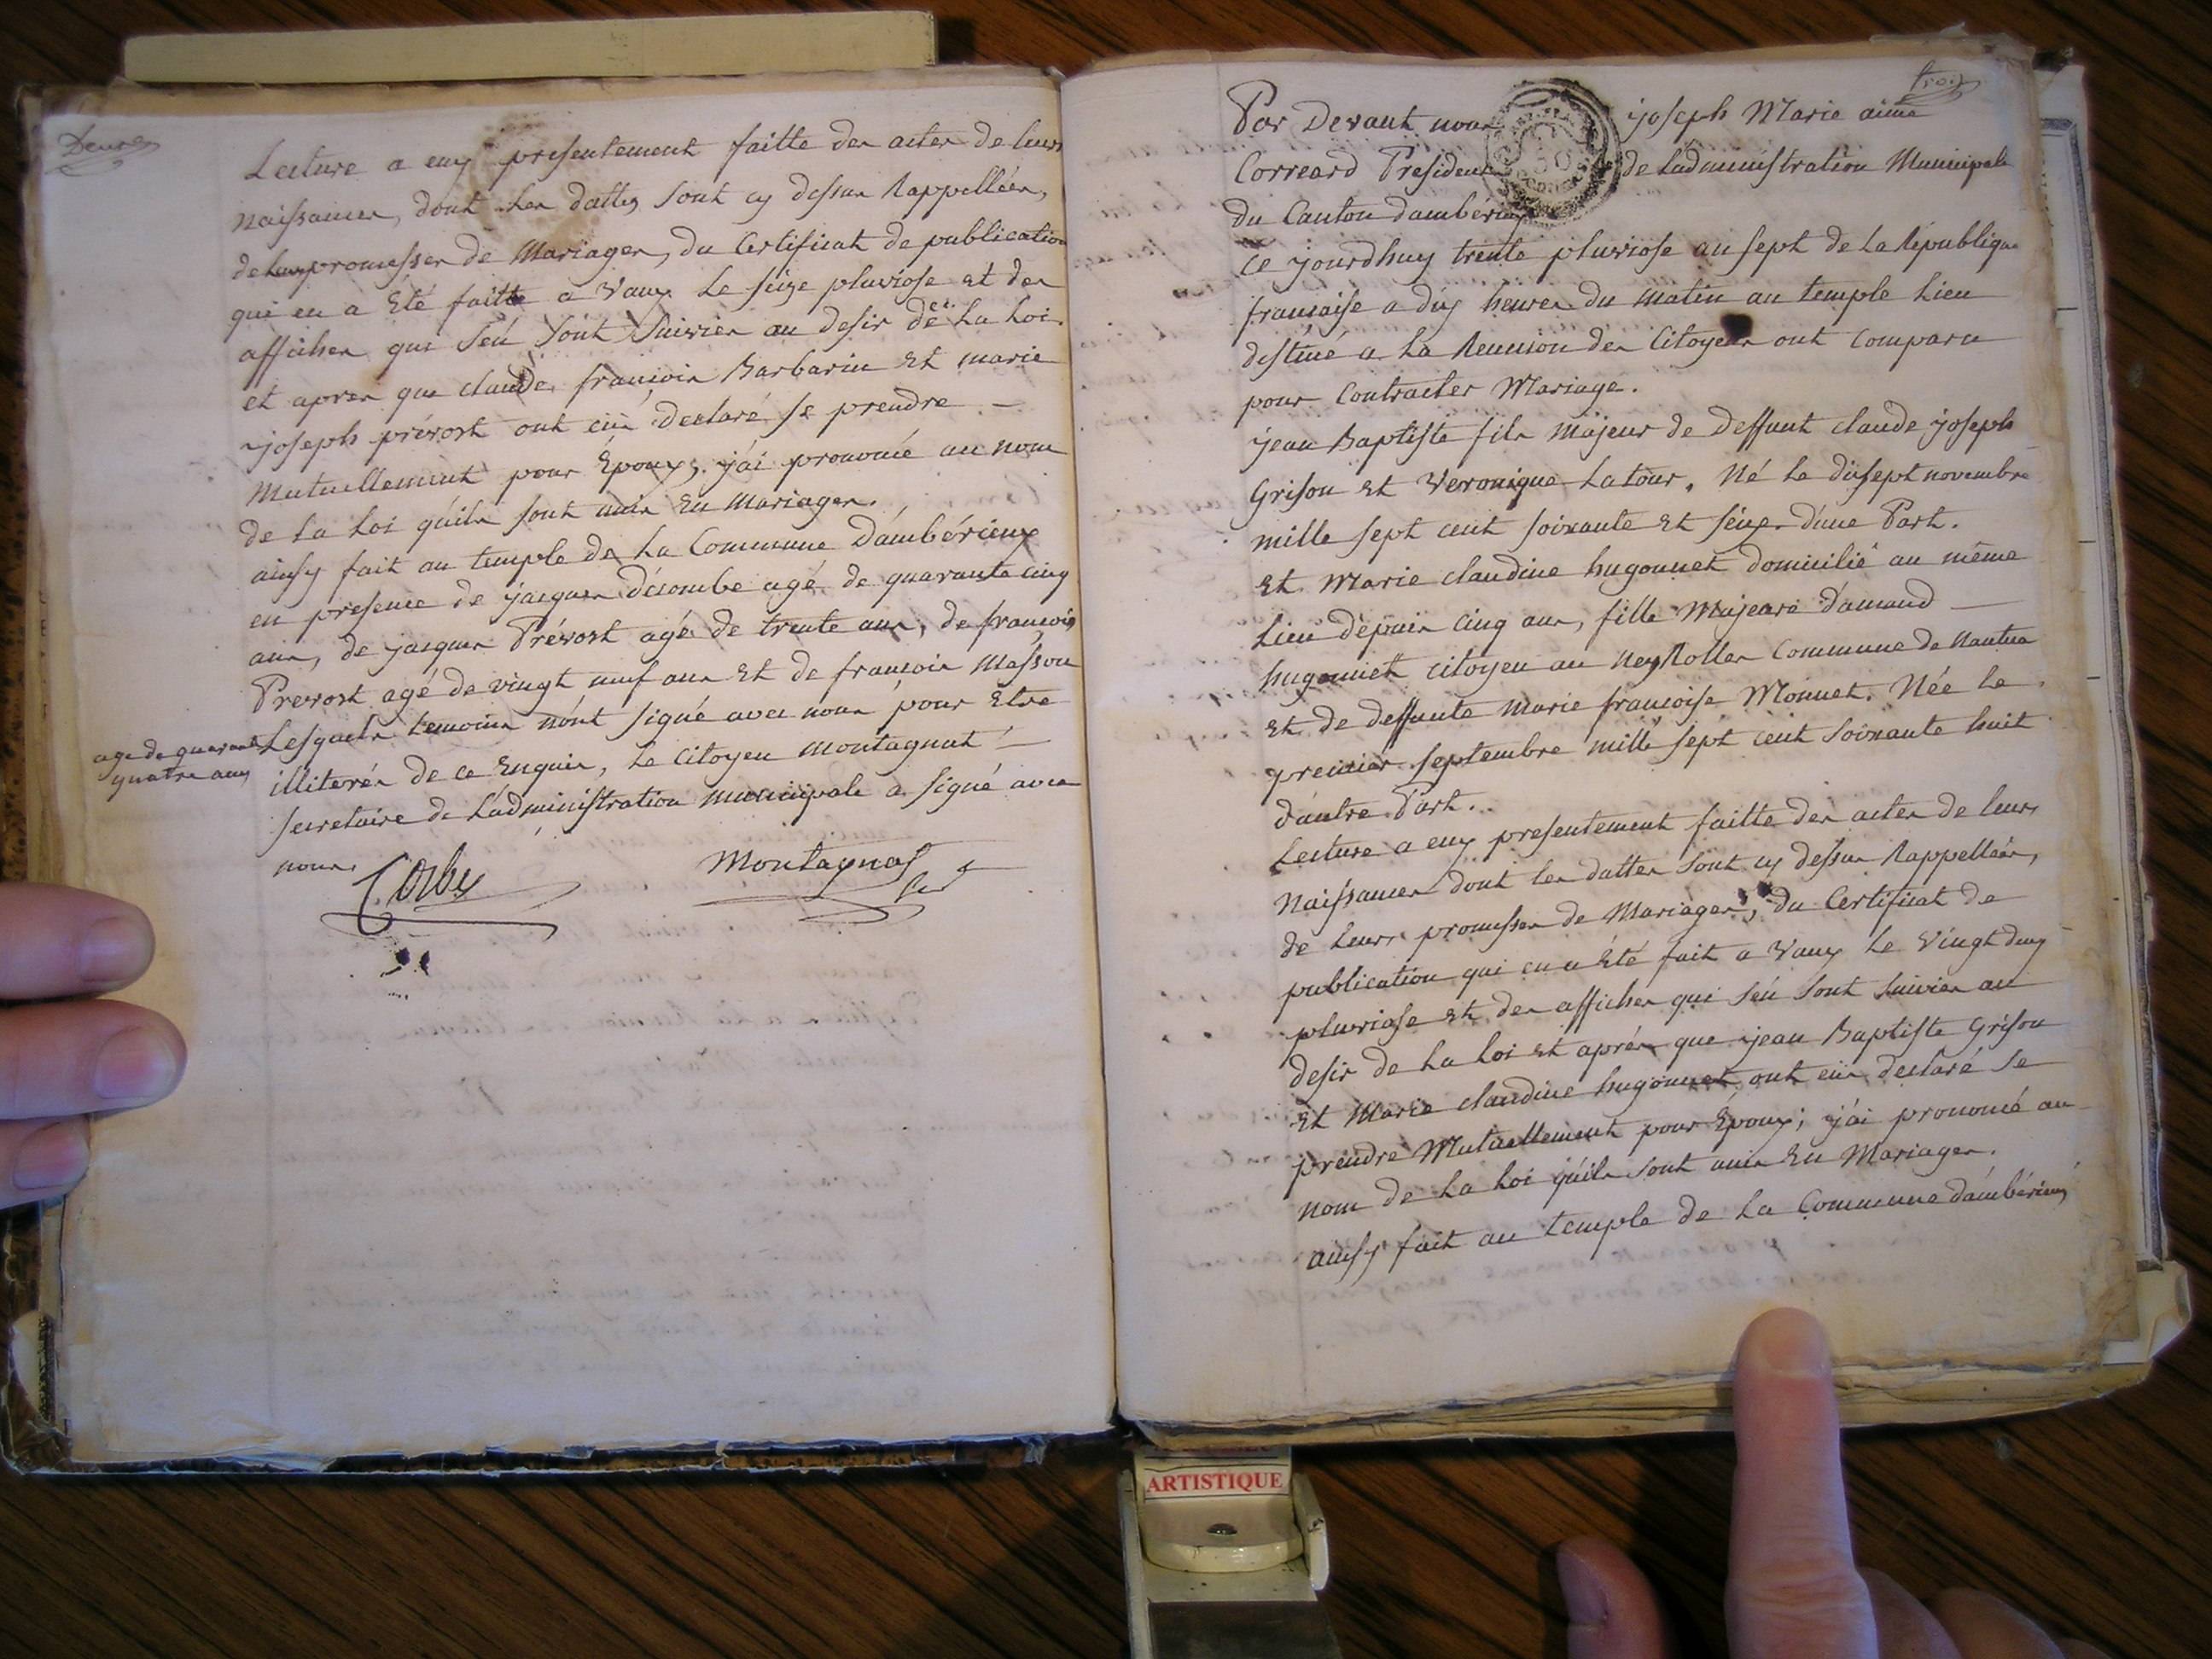 Deux
Lecture a euz presentement faitte des actes de leurs
naissances, dont les dattes sont cy dessus Rappellées,
de leurs promesses de Mariages, du Certificat de publication
qui en a Eté faitte a Vaux le seize pluviose et des
affiches qui s'en sont suivies au desir de la Loi.
et apres que claude françois Barbarin et marie
joseph prévost ont eus declaré se prendre
Mutuellement pour Époux, j'ai prononcé au nom
de la Loi qu'ils sont unis En Mariages.
ainsy fait au temple de la Commune d'ambérieux
en presence de jacques décombe agé de quarante cinq
ans, de jacques Prévost agé de trente ans, de françois
Prevost agé de vingt neuf ans et de françois Masson
age de quarante
quatre ans
Lesquels temoins n'ont signé avec nous pour Etre
illiterés de ce Enquis, le Citoyen Montagnat
secretaire de L'administration municipale a signé avec
nous.
Montagnat
trois
Par Devant nous joseph Marie aimé
Correard President de L'administration Municipale
du Canton d'ambérieux
Ce jourdhuy trente pluviose an sept de la République
francaise a dix heures du matin au temple Lieu
destiné a la Reunion des Citoyens ont Comparu
pour Contracter Mariage.
jean Baptiste fils majeur de deffunt claude joseph
Grison et Veronique Latour. Né le dixsept novembre
mille sept cent soixante et seize d'une Part.
et Marie claudine hugonnet domicilié au même
Lieu depuis cinq ans, fille Majeure d'amand
hugonnet citoyen au Neyrolles Commune de Nantua
et de deffunte Marie françoise Monnet. Née le
premier septembre mille sept cent soixante huit
d'autre Part.
Lecture a euz presentement faitte des actes de leurs
Naissances dont les dattes sont cy dessus Rappellées,
de leurs promesses de Mariages, du Certificat de
publication qui en a Eté fait a Vaux le Vingt deux
pluviose et des affiches qui s'en sont suivies au
desir de la Loi et après que jean Baptiste Grison
et Marie claudine hugonnet ont eus declaré se
prendre Mutuellement pour Époux; j'ai prononcé au
nom de la Loi qu'ils sont unis En Mariages.
ainsy fait au temple de la Commune d'ambérieux
ARTISTIQUE